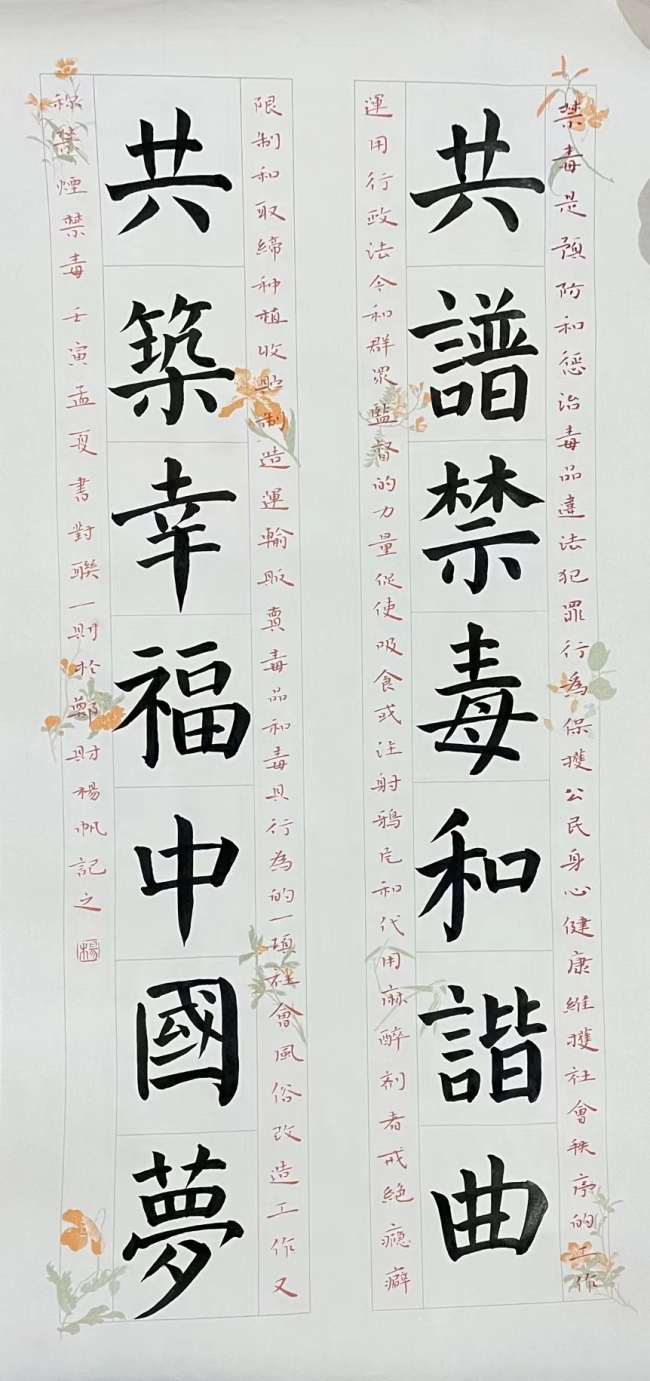 禁毒是預防和惩治毒品違法犯罪行為保擭公民身心健康維擭社會秩序的工作
共譜禁毒和諧曲
運用行政法令和群眾監督的力量促使吸食或注射鴉片和代用麻醉剂者戒絕癮癖
限制和取締种植收貯制造運輸販賣毒品和毒具行為的一項社會風俗改造工作又
共築幸福中國夢
称禁煙禁毒壬寅孟夏書對聯一則於鄭財楊帆記之
楊